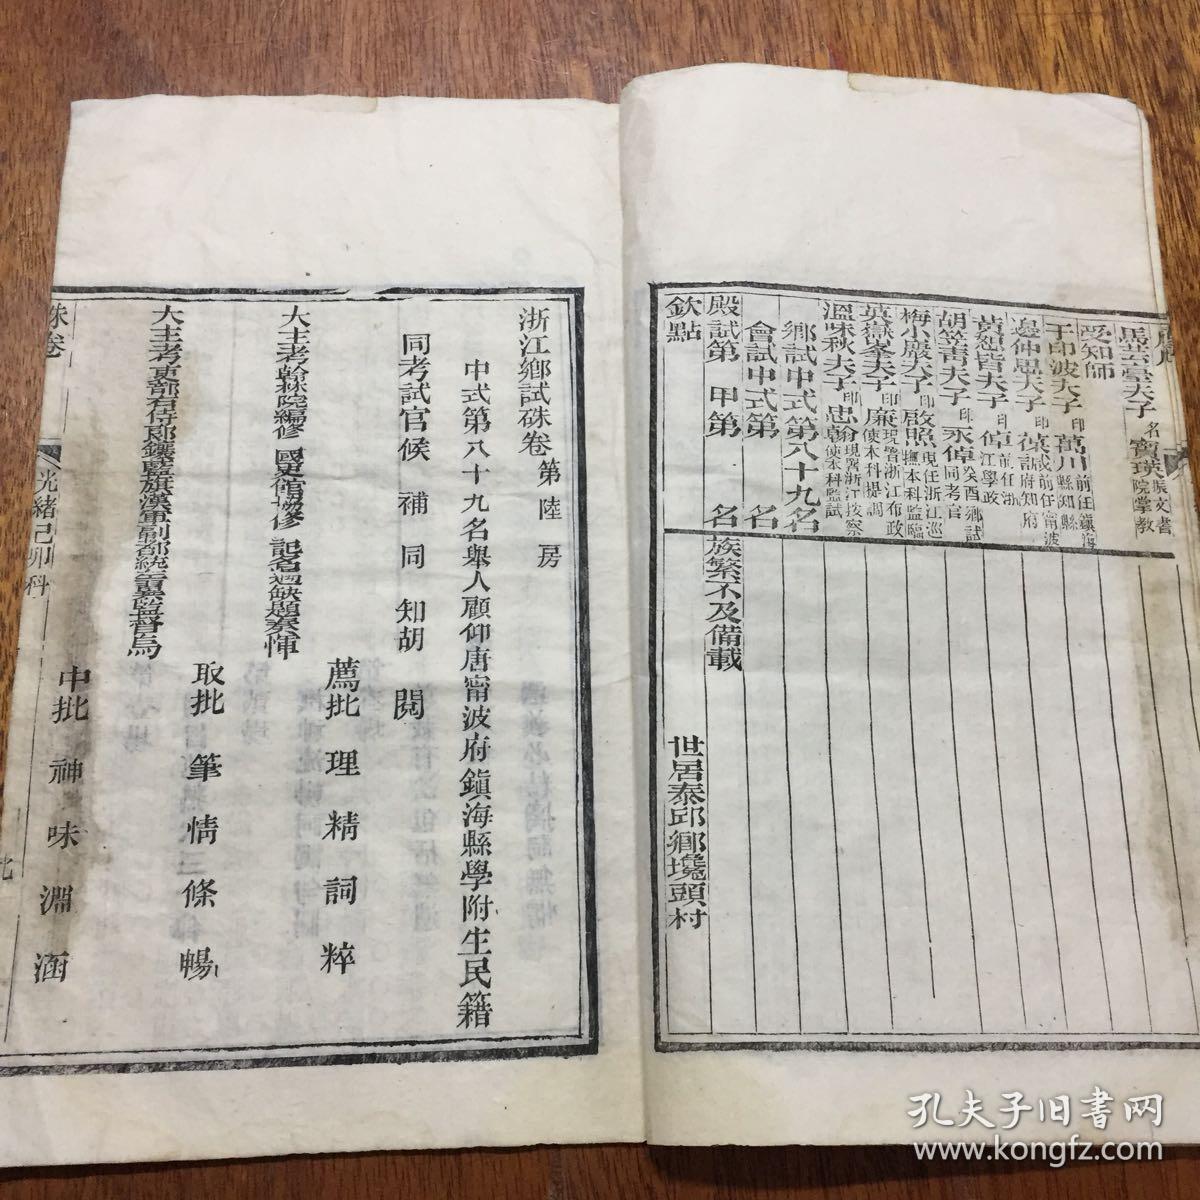 馬芸臺夫子 名寶瑛振文書院掌教
受知師
于印波夫子 印萬川前任鎮海縣知縣
邊仲思夫子 印葆諴前任甯波府知府
黃恕皆夫子 印倬前任浙江學政
胡笠青夫子 印永倬癸酉鄉試同考官
梅小巖夫子 印啟照現任浙江巡撫本科監臨
英嶽峯夫子 印廉現署浙江布政使本科提調
溫味秋夫子 印忠翰現署浙江按察使本科監試
鄉試中式第八十九名
會試中式第 名
殿試第 甲第 名
欽點
族繁不及備載
世居泰邱鄉墝頭村
浙江鄉試硃卷 第陸房
中式第八十九名舉人顧仰唐甯波府鎮海縣學附生民籍
同考試官候補同知胡 閱
薦批 理精詞粹
大主考翰林院編修 國史館協修 記名遇缺題奏惲
取批 筆情條暢
大主考吏部右侍郎鑲藍旗漢軍副都統左翼監督烏
中批 神味淵涵
硃卷
光緒己卯科
孔夫子旧书网
www.kongfz.com